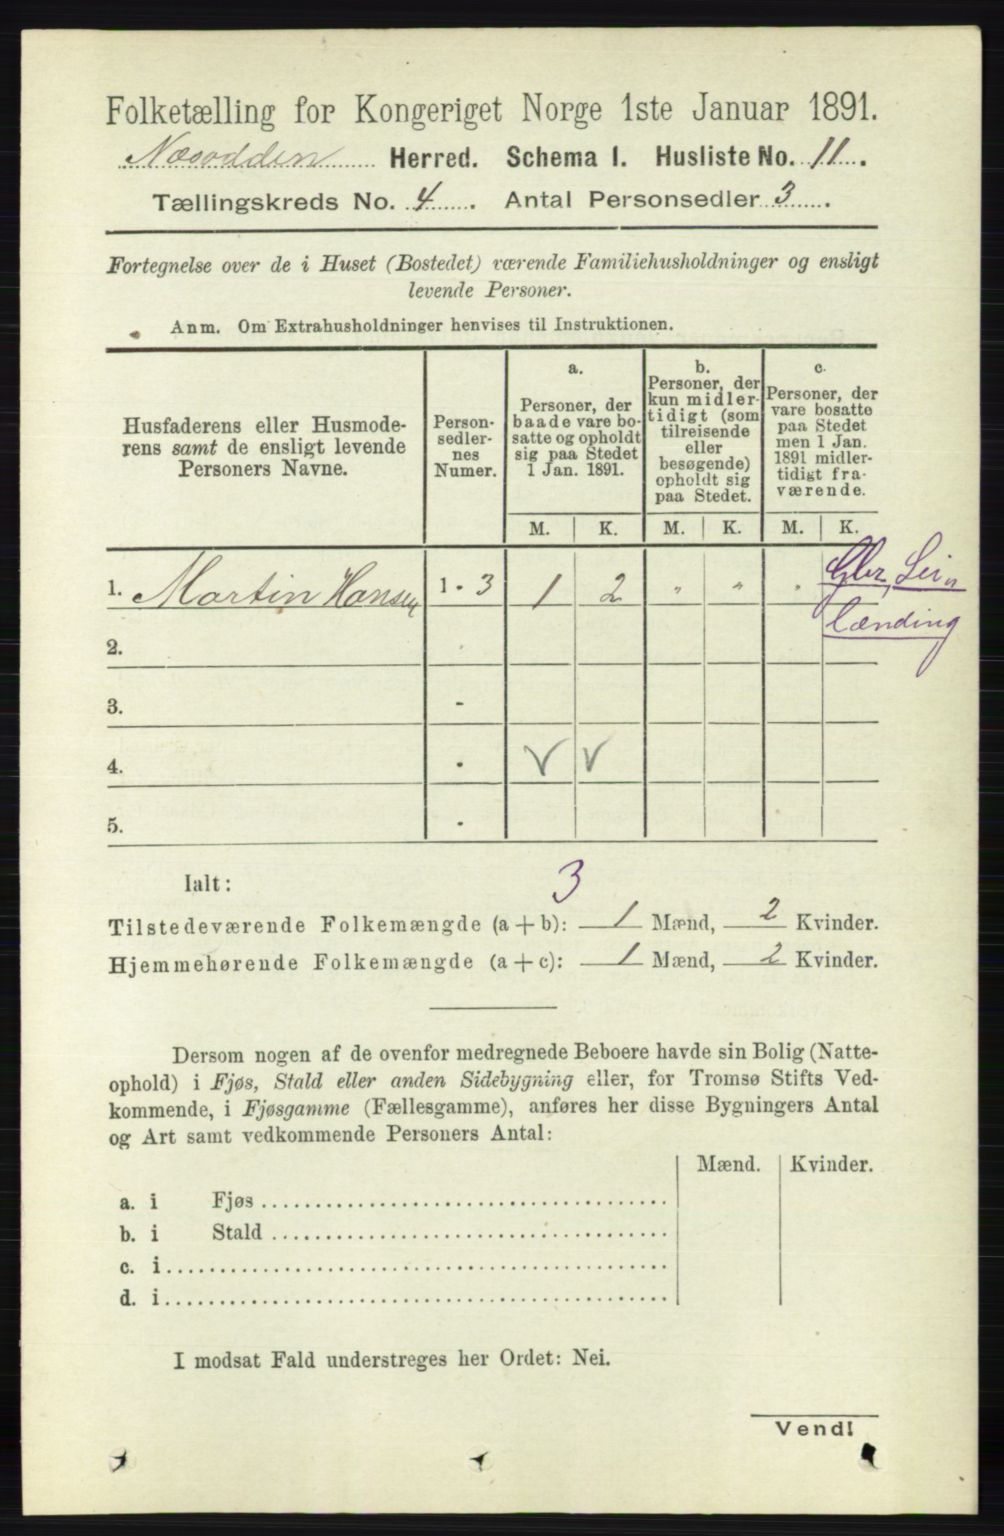 Folketælling for Kongeriget Norge 1ste Januar 1891.
Næsodden Herred. Schema I. Husliste No. 11.
Tællingskreds No. 4. Antal Personsedler 3.
Fortegnelse over de i Huset (Bostedet) værende Familiehusholdninger og ensligt
levende Personer.
Anm. Om Extrahusholdninger henvises til Instruktionen.
Husfaderens eller Husmode-
rens samt de ensligt levende
Personers Navne.
Person-
sedler-
nes
Numer.
a.
Personer, der
baade vare bo-
satte og opholdt
sig paa Stedet
1 Jan. 1891.
b.
Personer, der
kun midler-
tidigt (som
tilreisende
eller
besøgende)
opholdt sig
paa Stedet.
c.
Personer, der
vare bosatte
paa Stedet
men 1 Jan.
1891 midler-
tidigt fra-
værende.
M. K. M. K. M. K.
1. Martin Hansen 1 - 3 1 2 " " "
Gbr, Lei
lænding
2.
3. -
4. V V
5.
Ialt: 3
Tilstedeværende Folkemængde (a + b): 1 Mænd, 2 Kvinder.
Hjemmehørende Folkemængde (a + c): 1 Mænd, 2 Kvinder.
Dersom nogen af de ovenfor medregnede Beboere havde sin Bolig (Natte-
ophold) i Fjøs, Stald eller anden Sidebygning eller, for Tromsø Stifts Ved-
kommende, i Fjøsgamme (Fællesgamme), anføres her disse Bygningers Antal
og Art samt vedkommende Personers Antal:
Mænd. Kvinder.
a. i Fjøs
b. i Stald
c. i
d. i
I modsat Fald understreges her Ordet: Nei.
Vend!